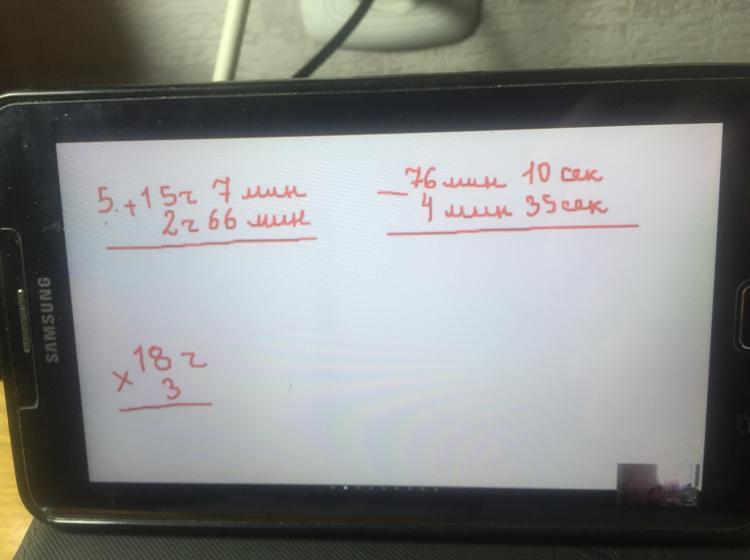 5. + 15ч 7 мин
2ч 66 мин
- 76 мин 10 сек
4 мин 35 сек
× 18 ч
3
SAMSUNG